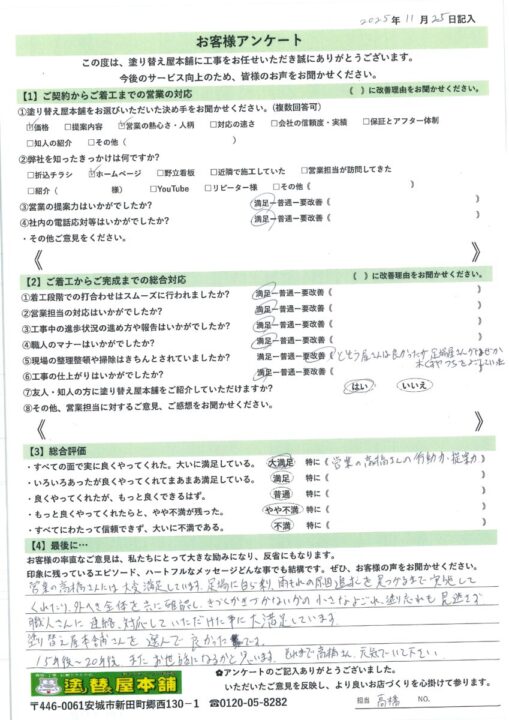 2025年11月25日記入
お客様アンケート
この度は、塗り替え屋本舗に工事をお任せいただき誠にありがとうございます。
今後のサービス向上のため、皆様のお声をお聞かせください。
【1】ご契約からご着工までの営業の対応 《 》に改善理由をお聞かせください。
①塗り替え屋本舗をお選びいただいた決め手をお聞かせください。(複数回答可)
☑価格 □提案内容 ☑営業の熱心さ・人柄 □対応の速さ □会社の信頼度・実績 □保証とアフター体制
□知人の紹介 □その他( )
②弊社を知ったきっかけは何ですか?
□折込チラシ ☑ホームページ □野立看板 □近隣で施工していた □営業担当が訪問してきた
□紹介( 様) □YouTube □リピーター様 □その他《 》
③営業の提案力はいかがでしたか? 満足ー普通ー要改善《 》
④社内の電話応対等はいかがでしたか? 満足ー普通ー要改善《 》
・その他ご意見をください。
《 》
【2】ご着工からご完成までの総合対応 《 》に改善理由をお聞かせください。
①着工段階での打合わせはスムーズに行われましたか? 満足ー普通ー要改善《 》
②営業担当の対応はいかがでしたか? 満足ー普通ー要改善《 》
③工事中の進歩状況の進め方や報告はいかがでしたか? 満足ー普通ー要改善《 》
④職人のマナーはいかがでしたか? 満足ー普通ー要改善《 》
⑤現場の整理整頓や掃除はきちんとされていましたか? 満足ー普通ー要改善《とそう屋さんは良かったが足場屋さん
⑥工事の仕上がりはいかがでしたか? 満足ー普通ー要改善《 》
⑦友人・知人の方に塗り替え屋本舗をご紹介していただけますか? はい いいえ
⑧その他、営業担当に対するご意見、ご感想をお聞かせください。
《 》
【3】総合評価
・すべての面で実に良くやってくれた。大いに満足している。 大満足 特に《営業の高橋さんの行動力・提案力》
・いろいろあったが良くやってくれてまあまあ満足している。 満足 特に《 》
・良くやってくれたが、もっと良くできるはず。 普通 特に《 》
・もっと良くやってくれたらと、やや不満が残った。 やや不満 特に《 》
・すべてにわたって信頼できず、大いに不満である。 不満 特に《 》
【4】最後に…
お客様の率直なご意見は、私たちにとって大きな励みになり、反省にもなります。
印象に残っているエピソード、ハートフルなメッセージどんな事でも結構です。ぜひ、お客様の声をお聞かせください。
営業の高橋さんには大変満足しています。足場に自ら登り、雨もれの原因追求を見つかるまで実施して
くれたり、外へき全体を共に確認し、きづくかきづかないかの小さなよごれ、塗りたれも見逃さず
職人さんに連絡、対応していただけた事に大満足しています。
塗り替え屋本舗さんを選んで良かったです。
15年後～20年後、またお世話になるかと思います。それまで高橋さん、元気でいて下さい。
塗替屋本舗
✿アンケートのご記入ありがとうございました。
いただいたご意見を反映し、より良いお店づくりを心掛けて参ります。
〒446-0061安城市新田町郷西130－1 ☎0120-05-8282
担当 高橋 NO.